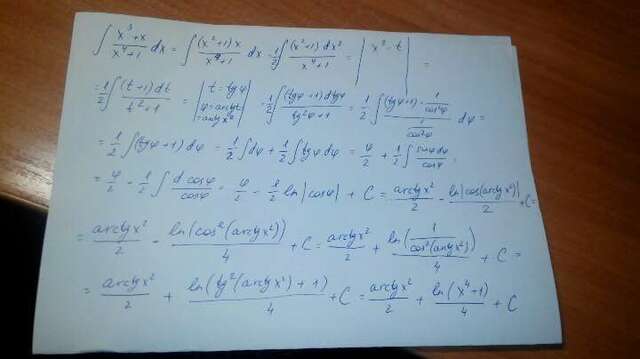 ∫ (x³+x)/(x⁴+1) dx = ∫ (x²+1)x/(x⁴+1) dx = 1/2 ∫ (x²+1)dx²/(x⁴+1) = | x² = t | =
= 1/2 ∫ (t+1)dt/(t²+1) = | t = tgφ φ = arctgt = arctgx² | = 1/2 ∫ (tgφ+1)dtgφ/(tg²φ+1) = 1/2 ∫ ((tgφ+1)·1/cos²φ)/(1/cos²φ) dφ =
= 1/2 ∫(tgφ+1)dφ = 1/2 ∫dφ + 1/2 ∫tgφdφ = φ/2 + 1/2 ∫ sinφdφ/cosφ =
= φ/2 - 1/2 ∫ dcosφ/cosφ = φ/2 - 1/2 ln|cosφ| + C = arctgx²/2 - ln|cos(arctgx²)|/2 + C =
= arctgx²/2 - ln(cos²(arctgx²))/4 + C = arctgx²/2 + ln(1/cos²(arctgx²))/4 + C =
= arctgx²/2 + ln(tg²(arctgx²)+1)/4 + C = arctgx²/2 + ln(x⁴+1)/4 + C